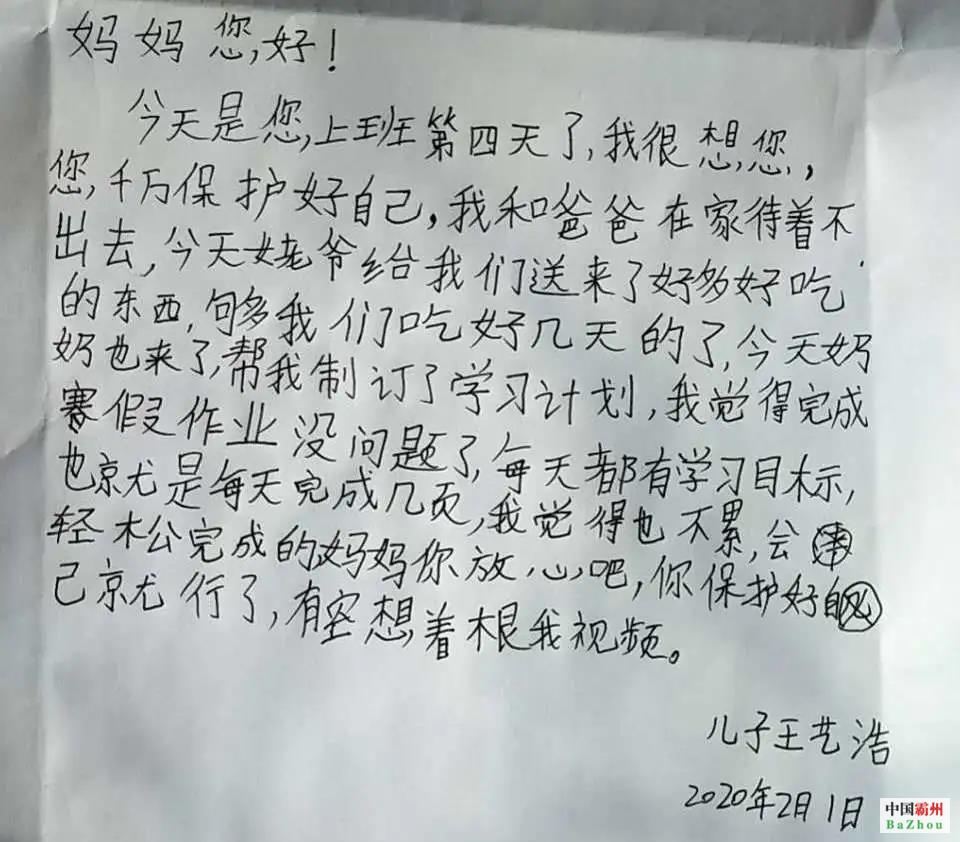 妈妈您,好!
今天是您,上班第四天了,我很想您,
您,千万保护好自己,我和爸爸在家待着不
出去,今天姥爷给我们送来了好多好吃
的东西,够多我们吃好几天的了,今天妈
妈也来了,帮我制订了学习计划,我觉得完成
寒假作业没问题了,每天都有学习目标,
也就是每天完成几页,我觉得也不累,会
轻松完成的妈妈你放心吧,你保护好自
己就行了,有空想着根我视频。
儿子王艺浩
2020年2月1日
中国霸州
BaZhou